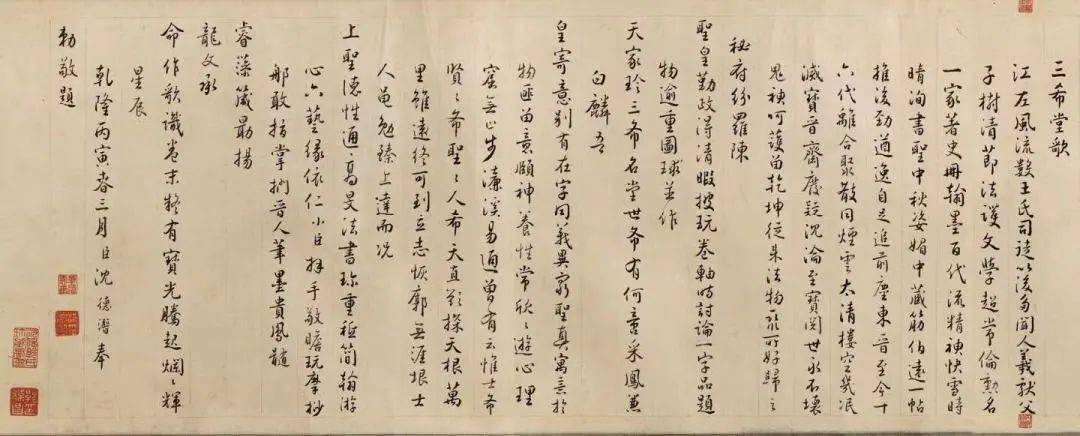 三希堂歌
江左風流數王氏司徒以後多聞人羲獻父
子樹清節法護文學超常倫勲名
一家著史冊翰墨百代流精神快雪時
晴洵書聖中秋姿媚中藏筋伯遠一帖
推後勁遒逸自足追前塵東晉至今十
六代離合聚散同煙雲太清樓空幾泯
滅寶晉齋廢疑沉淪至寶閱世永不壞
鬼神呵護苗乾坤從來法物聚所好歸之
秘府紛羅陳
聖皇勤政得清暇搜玩卷軸時討論一字品題
物逾重圖球並作
天家珍三希名堂世希有何啻采鳳兼
白麟吾
皇寄意別有在字同義異窮聖真寓意於
物匪留意頤神養性常欣欣遊心理
窟無止步濂溪易通曾有云惟士希
賢賢希聖聖人希天直欲探天根萬
里雖遠終可到立志恢郭無涯垠士
人黽勉臻上達而況
上聖德性通高旻法書珍重秪簡翰游
心六藝緣依仁小臣拜手敬瞻玩摩抄
那敢指掌捫晉人筆墨貴鳳髓
睿藻箴勗揚
龍文承
命作歌識卷末疑有寶光騰起爛爛輝
星辰
乾隆丙寅春三月臣沈德潛奉
勅敬題